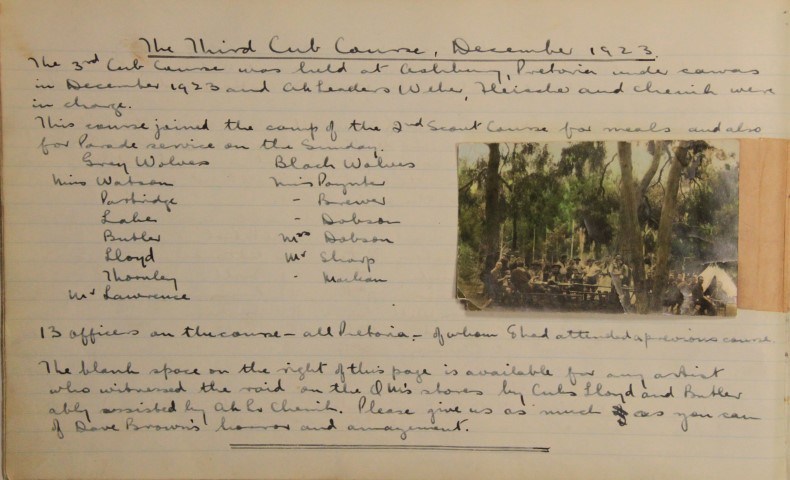 The Third Cub Course, December 1923.
The 3rd Cub Course was held at Ashbury, Pretoria under canvas
in December 1923 and Ak. Leaders Weber, Fleische and Chenik were
in charge.
This course joined the camp of the 2nd Scout Course for meals and also
for Parade service on the Sunday.
Grey Wolves Black Wolves
Miss Watson Miss Paynter
Partridge - Brewer
Lakes - Dobson
Butler Mrs Dobson
Lloyd Mr Sharp
Thornley -
Mr Lawrence
13 officers on the course - all Pretoria - of whom 5 had attended a previous course.
The blank space on the right of this page is available for any artist
who witnessed the raid on the QM's stores by Cubs Lloyd and Butler
ably assisted by Ak Lr Chenik. Please give us as much as you can
of Dave Brown's horror and amazement.